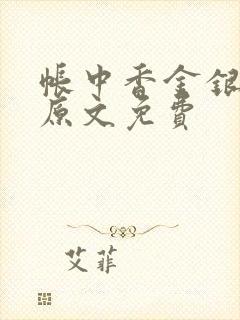 帳中香金銀
原文免費
艾菲